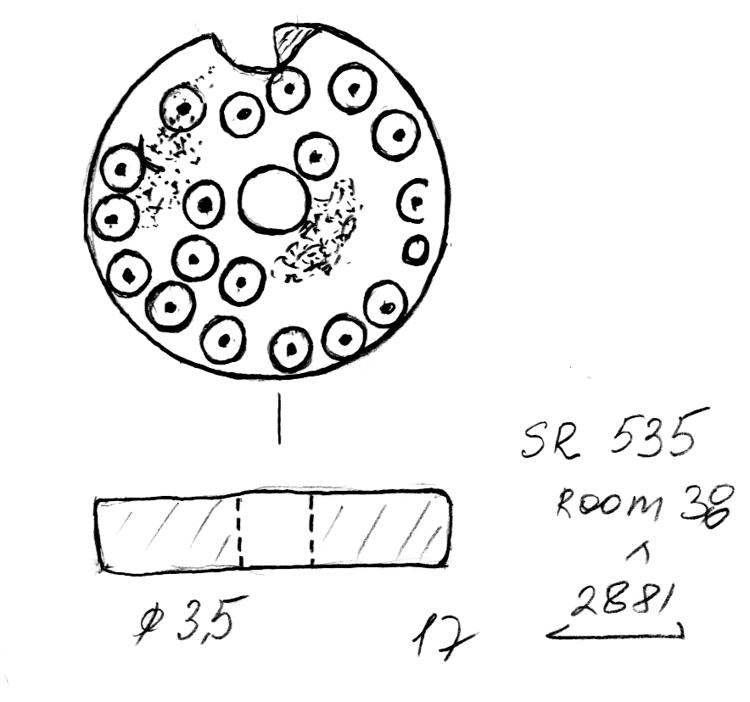 SR 535
ROOM 38
^
2881
ø 3,5
17